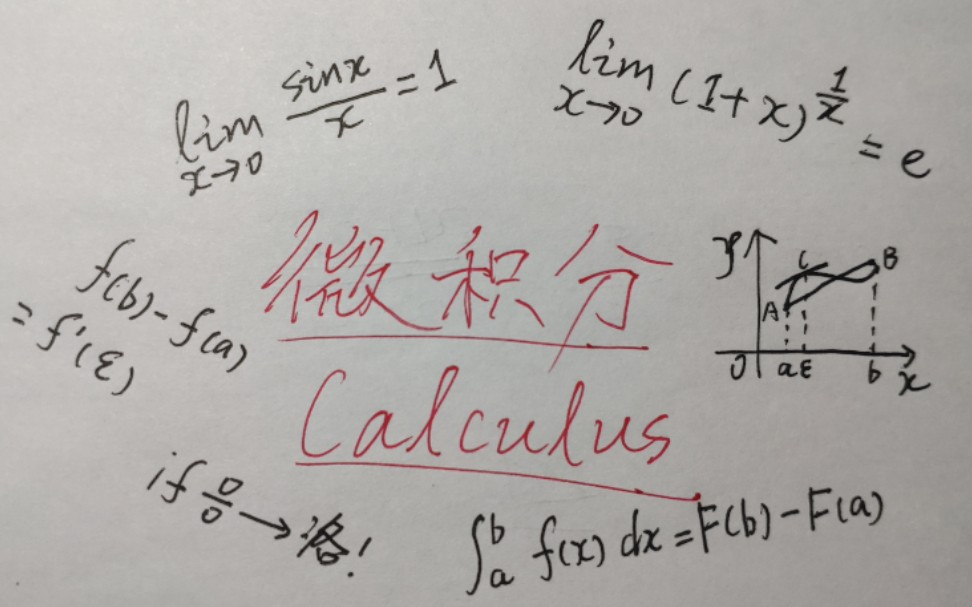 lim x→0 sinx/x = 1
lim x→0 (1+x)^(1/x) = e
微积分
Calculus
f(b)-f(a)
= f'(ε)
y
C
B
A
0 a ε b x
if 0/0 → 洛!
∫_a^b f(x) dx = F(b) - F(a)